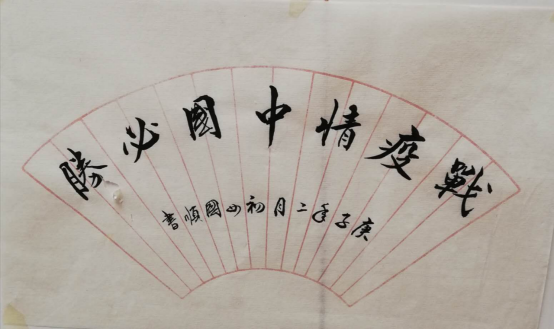 戰疫情中國必勝
庚子年二月初山國順書